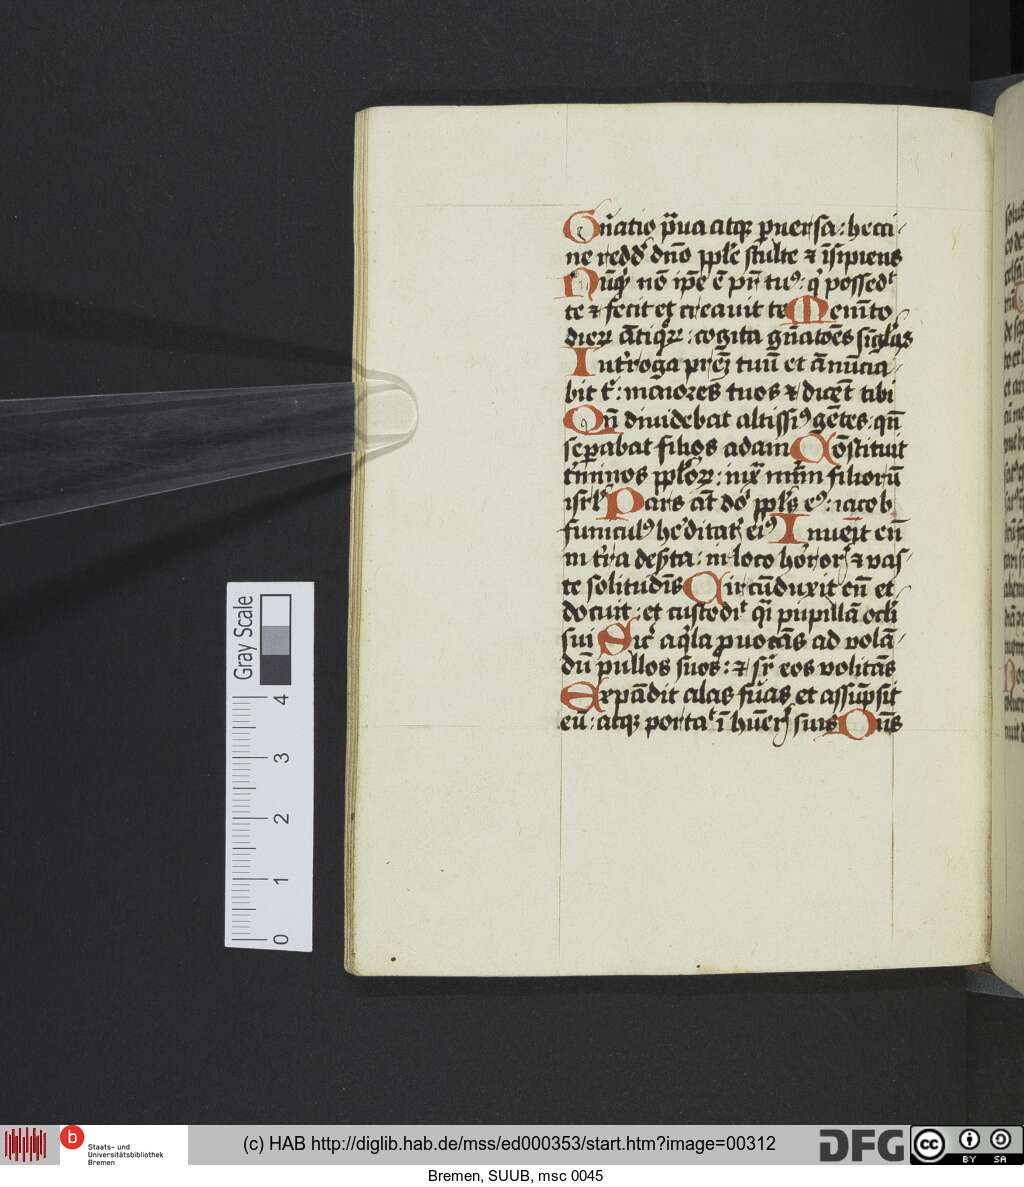 Gn̄atio p̄ua atqꝫ ꝑuersa: hecci
ne reddꝰ dn̄o pplē stulte ⁊ īsipiens
Nūqͥ nō ip̄e ē pr̄ tuꝰ: qͥ possedͭ
te ⁊ fecit et creauit te Memēto
dieꝝ ātiqͦꝝ: cogita gn̄atōēs sīglãs
Int̓roga prēȝ tuū et ānūcia
bit tͥ: maiores tuos ⁊ dicēt tibi
Qn̄ diuidebat altissīꝰ gētes: qn̄
seꝑabat filios adam Cōstituit
t̓minos pplo̓ꝝ: iuxͣ nūm̄ filiorū
isrl̓ Pars āt dōͥ ppl̓s eꝰ: iacob
funiculꝰ he̓ditatͥ eiꝰ Inueīt eū
in t̓ra des̓ta: in loco ho̓rorͥ ⁊ vas
te solitudīs Circūduxit eū et
docuit: et custodiͭ qͣi pupillā ocli
sui Sicͭ aqͥla ꝓuocās ad volā
dū pullos suos: ⁊ sꝑ eos volitās
Expādit alas suas et assūpsit
eū: atqꝫ portaͭ ī hūerͥ suis Dn̄s
Gray Scale
4
3
2
1
0
b
Staats- und
Universitätsbibliothek
Bremen
(c) HAB http://diglib.hab.de/mss/ed000353/start.htm?image=00312
DFG
cc
BY SA
Bremen, SUUB, msc 0045